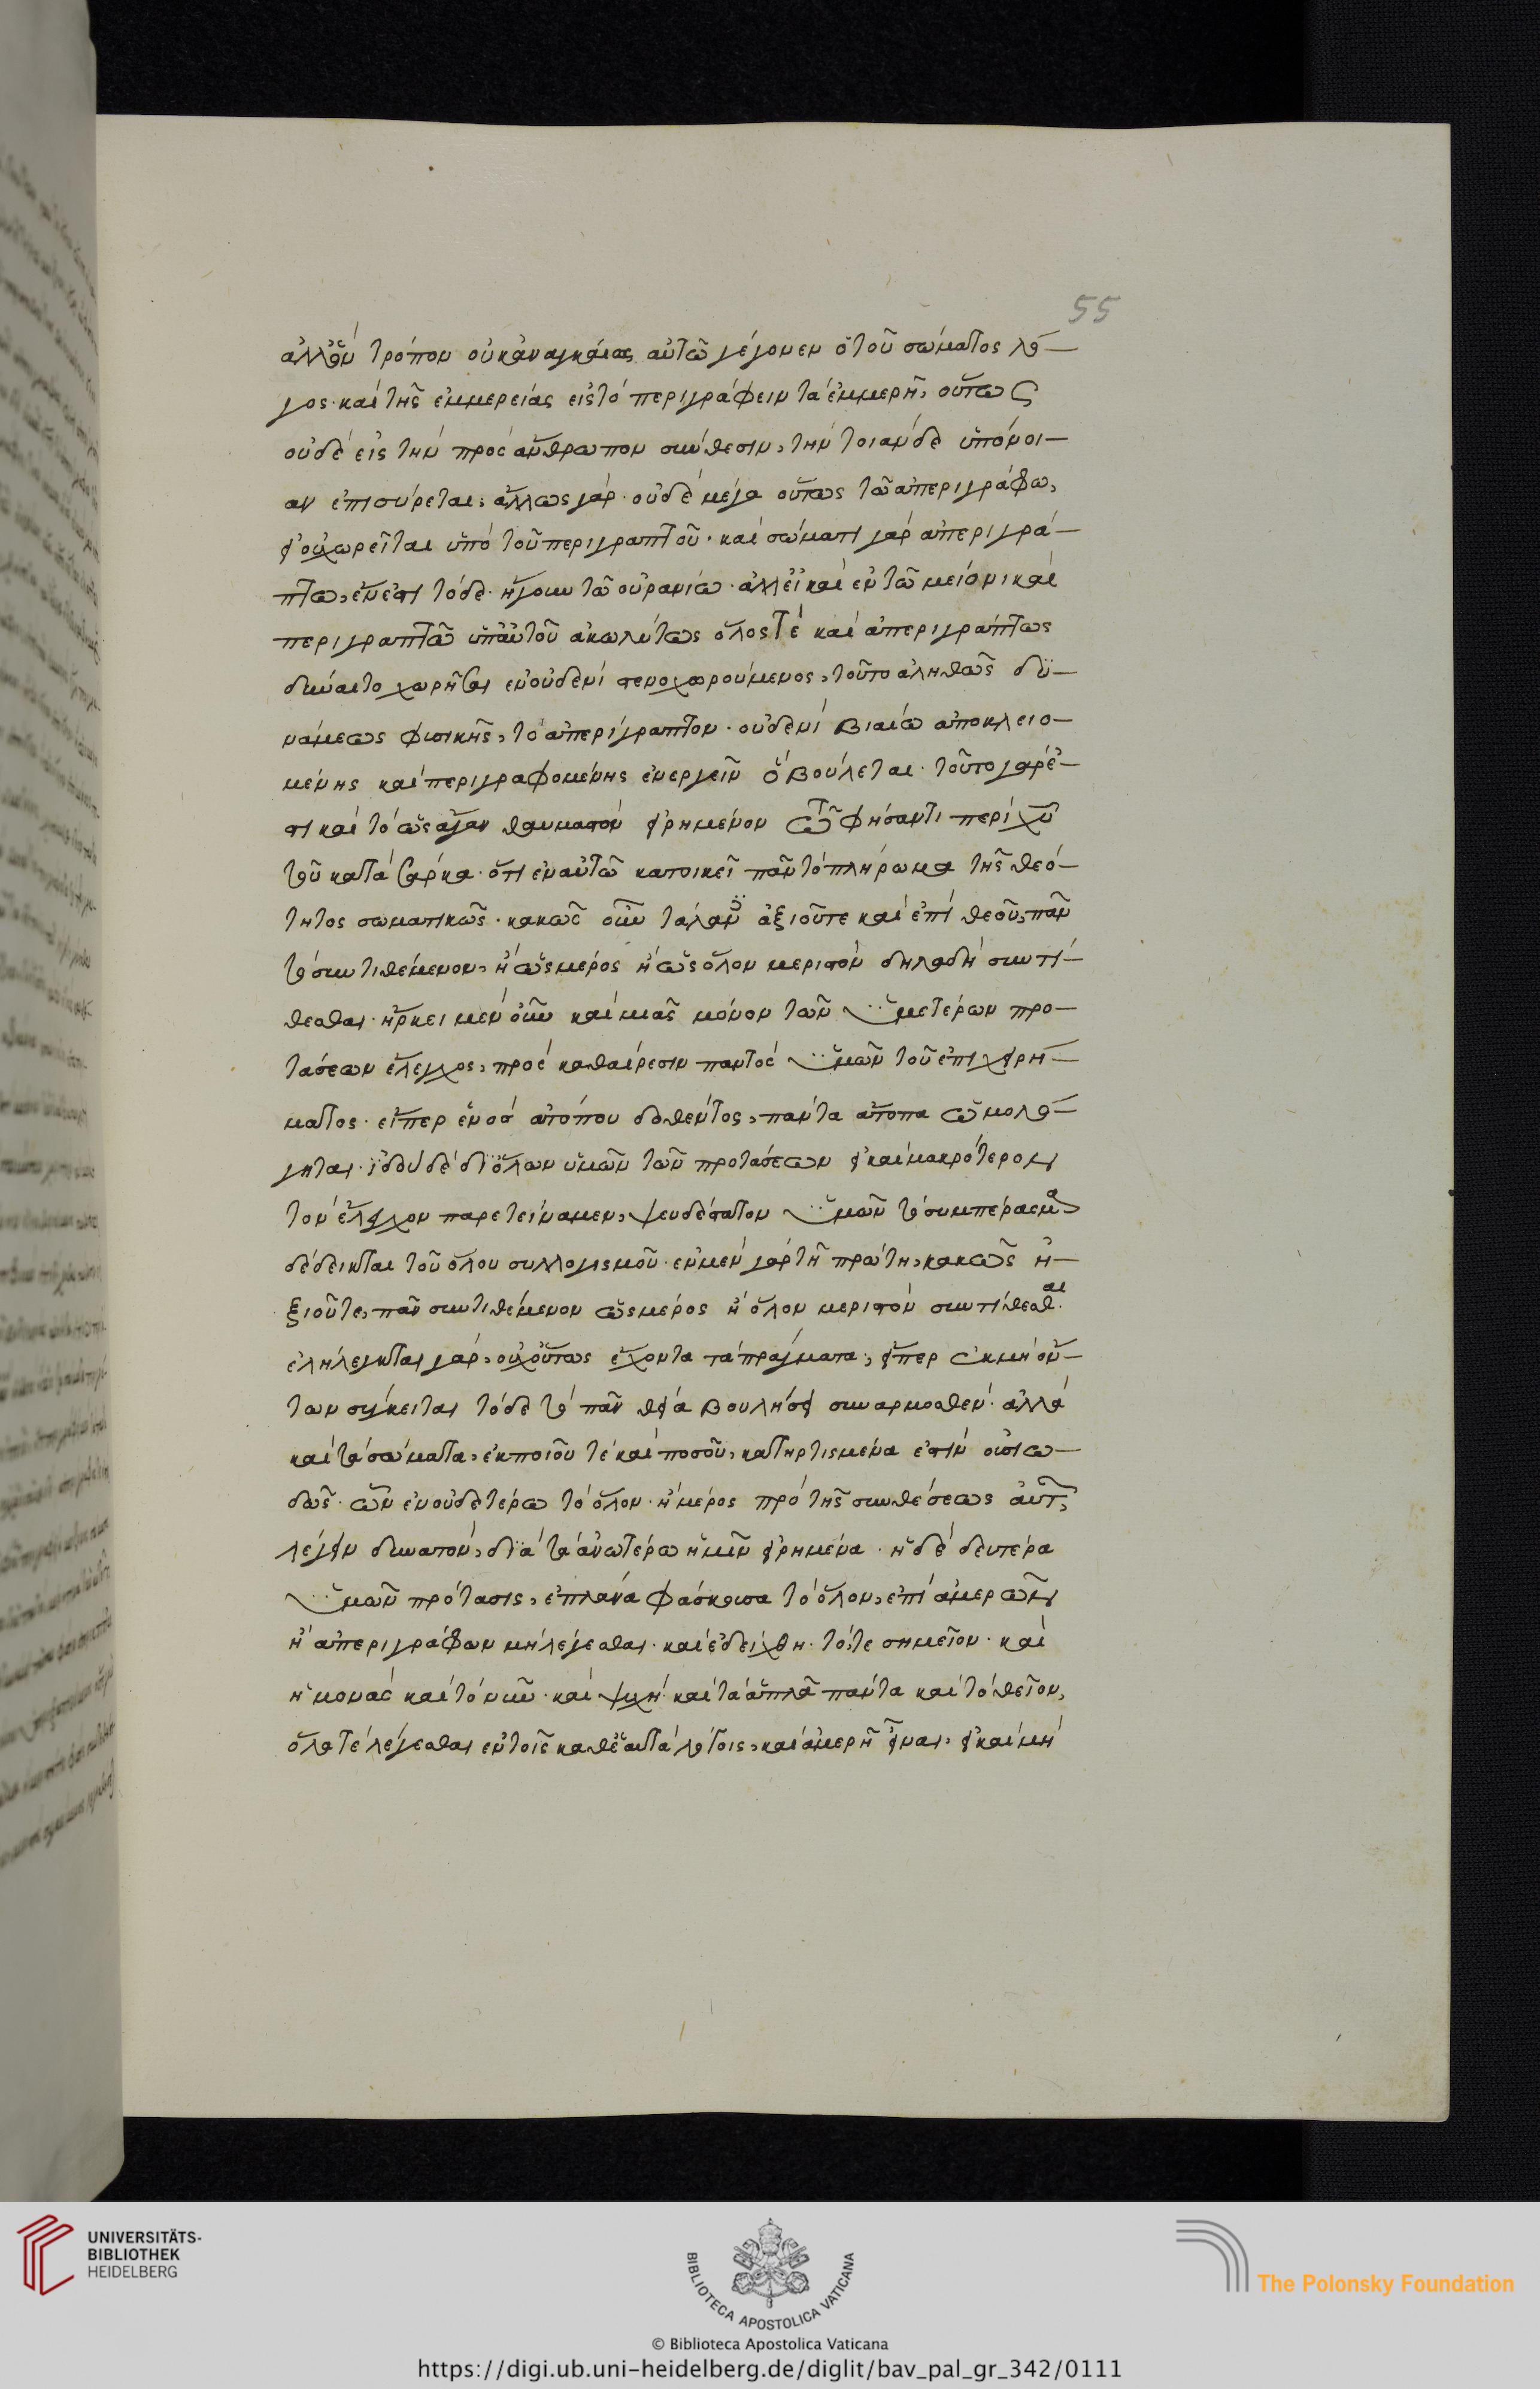 55
ἀλλ' ὃν τρόπον οὐκ ἀναγκάιως αὐτῶ γέγονεν ὁ τοῦ σώματος λό-
γος· καὶ τῆς ἐμμερείας εἰς τὸ περιγράφειν τὰ ἐμμερῆ, οὕτως
οὐδὲ εἰς τὴν πρὸς ἄνθρωπον σύνθεσιν, τὴν τοιάνδε ὑπόνοι-
αν ἐπισύρεται, ἄλλως γὰρ· οὐδὲ μέγα οὕτως τῶ ἀπεριγράφω,
εἰ οὐ χωρεῖται ὑπὸ τοῦ περιγραπτοῦ· καὶ σώματι γὰρ ἀπεριγρά-
πτω, ἔνεστι τόδε· ἤγουν τῶ οὐρανίω· ἀλλ' εἰ καὶ ἐν τῶ μείονι καὶ
περιγραπτῶ ὑπ' αὐτοῦ ἀκωλύτως ὅλος τὲ καὶ ἀπεριγράπτως
δύναιτο χωρῆσαι ἐν οὐδενὶ στενοχωρούμενος, τοῦτο ἀληθῶς δυ-
νάμεως φυσικῆς, τὸ ἀπερίγραπτον· οὐδενὶ βιαίω ἀποκλειο-
μένης καὶ περιγραφομένης ἐνεργεῖν ὃ βούλεται· τοῦτο γάρ ἐ-
στι καὶ τὸ ὡς ἄγαν θαυμαστὸν εἰρημένον τῶ φήσαντι περὶ χυ
τοῦ κατὰ σάρκα· ὅτι ἐν αὐτῶ κατοικεῖ πᾶν τὸ πλήρωμα τῆς θεό-
τητος σωματικῶς· κακῶς οὖν ἀξιοῦτε καὶ ἐπὶ θεοῦ, πᾶν
τὸ συντιθέμενον, ἢ ὡς μέρος ἢ ὡς ὅλον μεριστὸν δηλαδὴ συντί-
θεσθαι· ἤρκει μὲν οὖν καὶ μιᾶς μόνον τῶν ὑμετέρων προ-
τάσεων ἔλεγχος, πρὸς καθαίρεσιν παντὸς ὑμῶν τοῦ ἐπιχειρή-
ματος· εἴπερ ἑνὸς ἀτόπου δοθέντος, πάντα ἄτοπα ὡμολό-
γηται· ἰδοὺ δὲ δι' ὅλων ὑμῶν τῶν προτάσεων εἰ καὶ μακρότερον
τὸν ἔλεγχον παρετείναμεν, ψευδέστατον ὑμῶν τὸ συμπέρασμα
δέδεικται τοῦ ὅλου συλλογισμοῦ· ἐν μὲν γὰρ τῆ πρώτη, κακῶς ἠ-
ξιοῦτε, πᾶν συντιθέμενον ὡς μέρος ἢ ὅλον μεριστὸν συντίθεσθαι·
ἐλήλεγκται γὰρ, οὐχ οὕτως ἔχοντα τὰ πράγματα, εἴπερ ἐκ μὴ ὄν-
των σύγκειται τόδε τὸ πᾶν θεία βουλήσει συναρμοσθέν· ἀλλὰ
καὶ τὰ σώματα, ἐκ ποιοῦ τὲ καὶ ποσοῦ, κατηρτισμένα ἐστὶν οὐσιω-
δῶς· ὧν ἐν οὐδετέρω τὸ ὅλον· ἢ μέρος πρὸ τῆς συνθέσεως αὐτ
λέγειν δυνατὸν, διὰ τὰ ἀνωτέρω ἡμῖν εἰρημένα· ἡ δὲ δευτέρα
ὑμῶν πρότασις, ἐπλανα φάσκουσα τὸ ὅλον, ἐπὶ ἀμερῶν
ἢ ἀπεριγράφων μὴ λέγεσθαι· καὶ ἐδείχθη· τό, τε σημεῖον· καὶ
ἡ μονὰς καὶ τὸ νῦν· καὶ ψυχὴ καὶ τὰ ἁπλᾶ πάντα καὶ τὸ θεῖον,
ὅλα τὲ λέγεσθαι ἐν τοῖς καθ' ἑαυτὰ λόγοις, καὶ ἀμερῆ εἶναι, εἰ καὶ μὴ
UNIVERSITÄTS-
BIBLIOTHEK
HEIDELBERG
BIBLIOTECA APOSTOLICA VATICANA
The Polonsky Foundation
© Biblioteca Apostolica Vaticana
https://digi.ub.uni-heidelberg.de/diglit/bav_pal_gr_342/0111